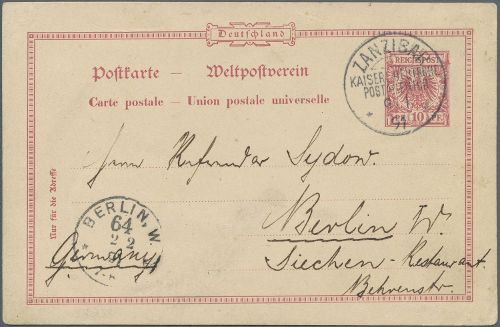 Deutschland
Postkarte — Weltpostverein
Carte postale — Union postale universelle
ZANZIBAR
KAISERL. DEUTSCHE
POST
91
REICHSPOST
10 PF
Nur für die Adresse
Herrn Referendar Sydow.
BERLIN, W.
64
2 2
Berlin W.
Germany
Siechen-Restaurant.
Behrenstr.